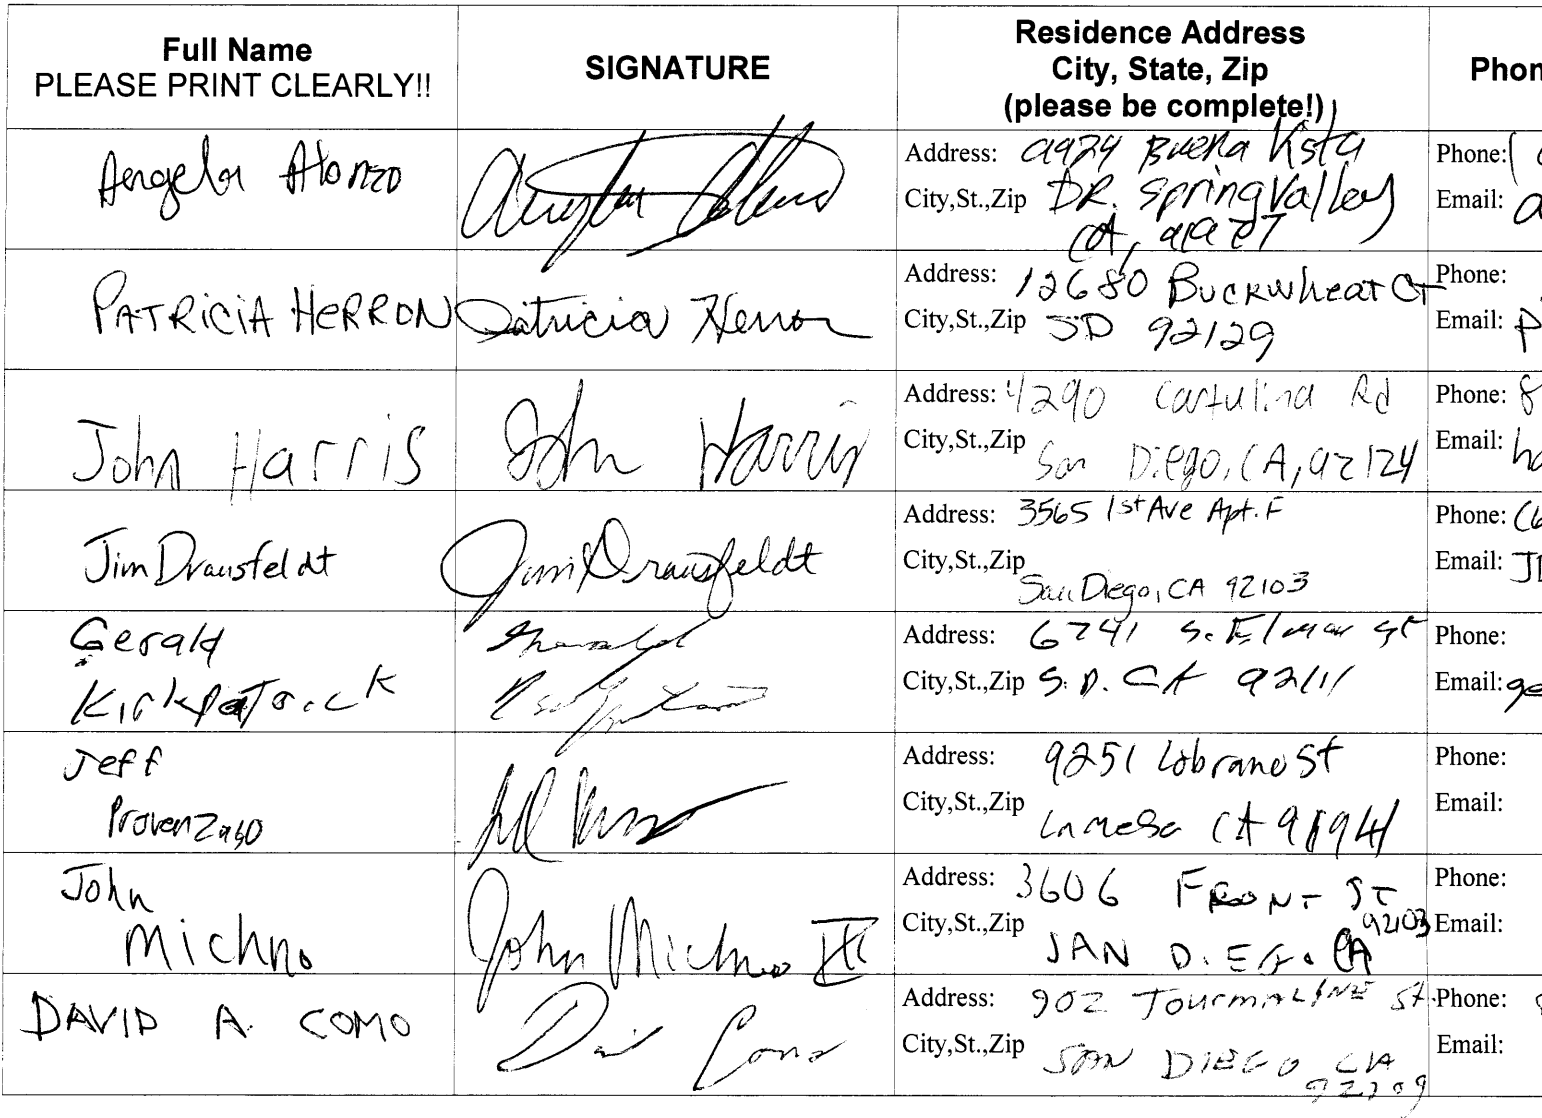 Full Name
PLEASE PRINT CLEARLY!!
SIGNATURE
Residence Address
City, State, Zip
(please be complete!)
Phon
Angela Alonzo
Address: 9924 Buena Vista
City,St.,Zip DR. Spring Valley
CA,
Phone: (
Email: a
PATRICIA HERRON
Patricia Herron
Address: 12680 Buckwheat Ct
City,St.,Zip SD 92129
Phone:
Email: P
John Harris
John Harris
Address: 4290 Cartulina Rd
City,St.,Zip San Diego, CA, 92124
Phone: 8
Email: ha
Jim Dransfeldt
Jim Dransfeldt
Address: 3565 1st Ave Apt. F
City,St.,Zip San Diego, CA 92103
Phone: (6
Email: JD
Gerald
Kirkpatrick
Gerald
Address: 6741 S. Elmar St
City,St.,Zip S.D. CA 92111
Phone:
Email: ge
Jeff
Provenzano
Address: 9251 Lobrano St
City,St.,Zip La Mesa CA 91941
Phone:
Email:
John
Michno
John Michno III
Address: 3606 FRONT ST
City,St.,Zip SAN DIEGO CA 92103
Phone:
Email:
DAVID A. COMO
David Como
Address: 902 TOURMALINE St.
City,St.,Zip SAN DIEGO CA
92109
Phone:
Email: